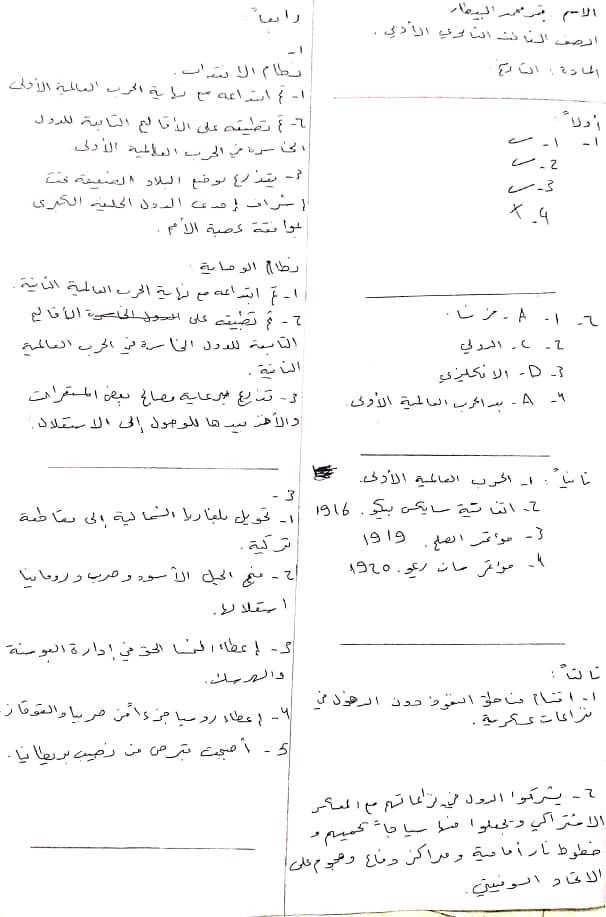 الاسم بتر محمد البيطار
الصف الثالث الثانوي الأدبي.
المادة: التاريخ
أولاً:
1- 1- ب
2- ب
3- ب
4- X
2- 1- A- فرنسا.
2- C- الدولي
3- D- الانكليزي
4- A- بعد الحرب العالمية الأولى.
ثانياً: 1- الحرب العالمية الأولى.
2- اتفاقية سايكس بيكو. 1916
3- مؤتمر الصلح. 1919
4- مؤتمر سان ريمو. 1920
ثالثاً:
1- اقتسام مناطق النفوذ دون الدخول في
نزاعات عسكرية.
2- يشركوا الدول في نزاعاتهم مع المعسكر
الاشتراكي ويجعلوا منها سياجاً تحميهم و
خطوط نار أمامية ومراكز دفاع وهجوم على
الاتحاد السوفييتي.
رابعاً:
1-
نظام الانتداب.
1- تم ابتداعه مع نهاية الحرب العالمية الأولى
2- تم تطبيقه على الأقاليم التابعة للدول
الخاسرة في الحرب العالمية الأولى
3- يتذرع بوضع البلاد الضعيفة تحت
إشراف إحدى الدول الحليفة الكبرى
بموافقة عصبة الأمم.
نظام الوصاية:
1- تم ابتداعه مع نهاية الحرب العالمية الثانية.
2- تم تطبيقه على الدول الخاسرة الأقاليم
التابعة للدول الخاسرة في الحرب العالمية
الثانية.
3- تتذرع برعاية مصالح بعض المستعمرات
والأخذ بيدها للوصول إلى الاستقلال.
3-
1- تحويل بلغاريا الشمالية إلى مقاطعة
تركية.
2- منح الجبل الأسود وصرب ورومانيا
استقلالها.
3- إعطاء النمسا الحق في إدارة البوسنة
والهرسك.
4- إعطاء روسيا جزءاً من صربيا والقوقاز.
5- أصبحت قبرص من نصيب بريطانيا.